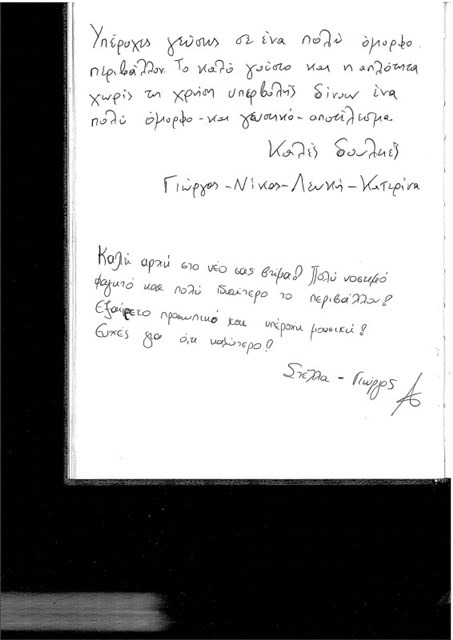 Υπέροχες γεύσεις σε ένα πολύ όμορφο
περιβάλλον. Το καλό γούστο και η απλότητα
χωρίς τη χρήση υπερβολής δίνουν ένα
πολύ όμορφο - και γευστικό - αποτέλεσμα.
Καλές δουλειές
Γιώργος - Νίκος - Λευκή - Κατερίνα
Καλή αρχή στο νέο σας βήμα! Πολύ νόστιμο
φαγητό και πολύ ιδιαίτερο το περιβάλλον!
Εξαίρετο προσωπικό και υπέροχη μουσική!
Ευχές για ό,τι καλύτερο!
Στέλλα - Γιώργος